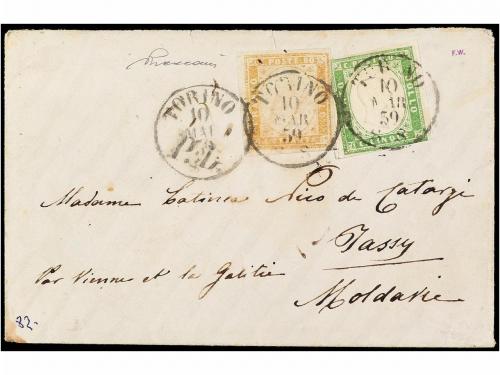 F.W.
C. POSTE 80
BOLLO
TORINO
10
MAR
59
TORINO
10
MAR
59
8 S
TORINO
10
MAR
P.D.
Madame Catinca Nico de Catargi
Jassy
Par Vienne et la Galitie
Moldavie
82-